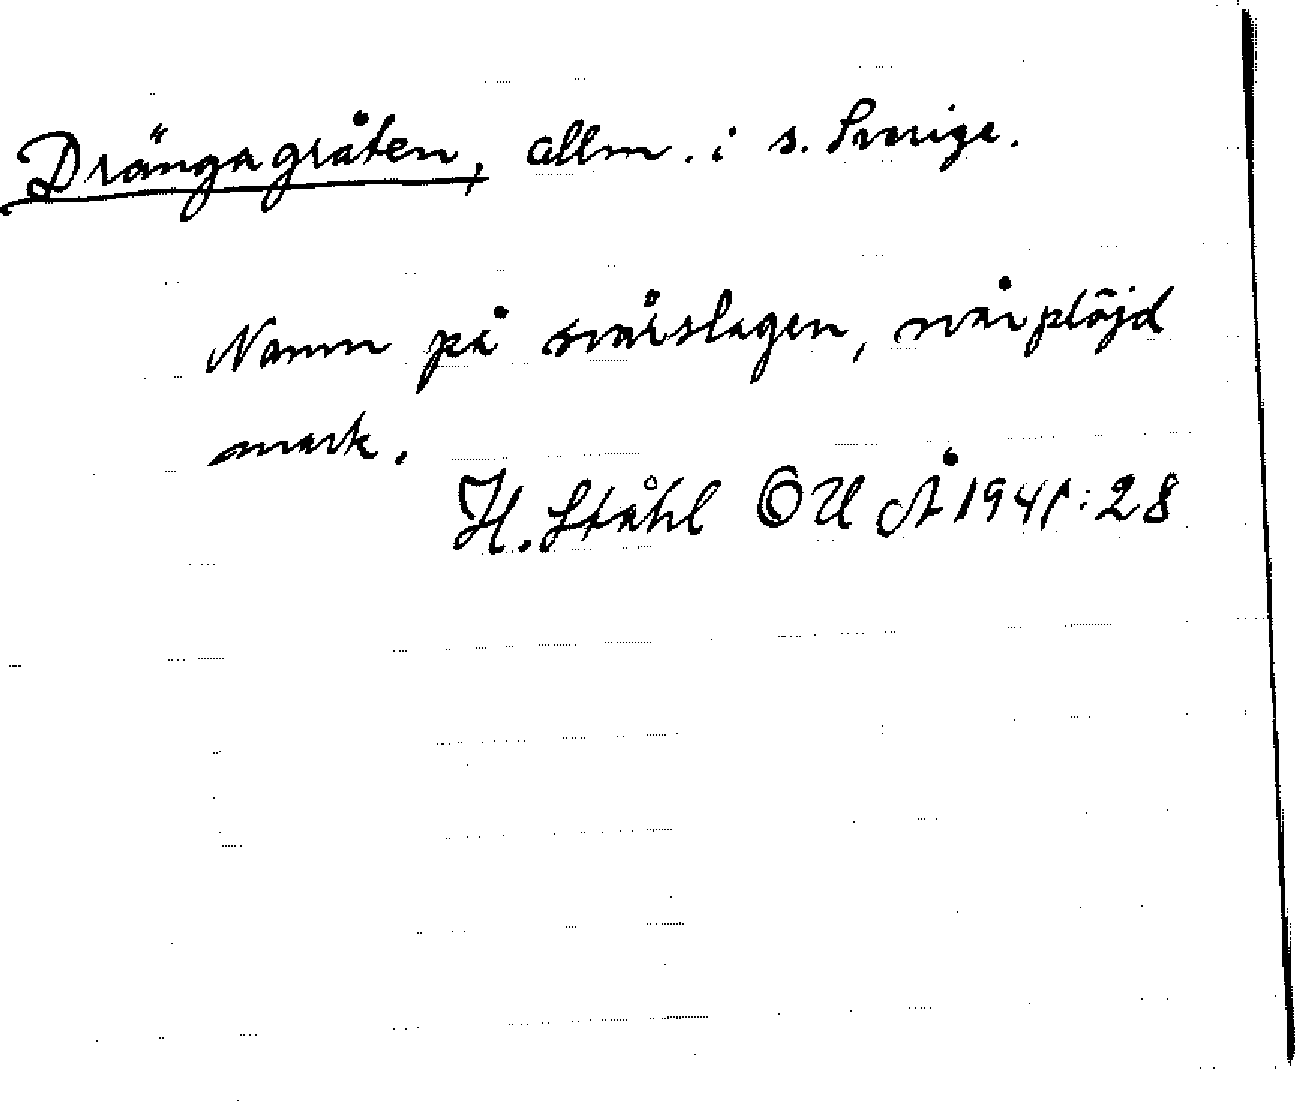 Drängagråten, allm. i s. Sverige.
Namn på svårslagen, svårplöjd
mark.
H. Ståhl OUÅ 1941:28